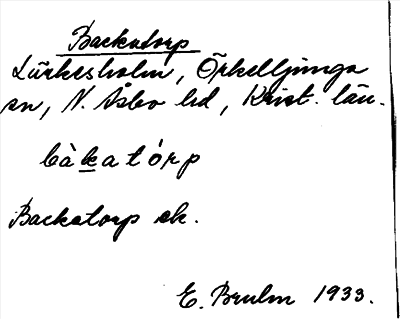 Backatorp
Lärkesholm, Örkelljunga
sn, N. Åsbo hd, Krist. län.
bàkatórp
Backatorp ek.
E. Bruhn 1933.